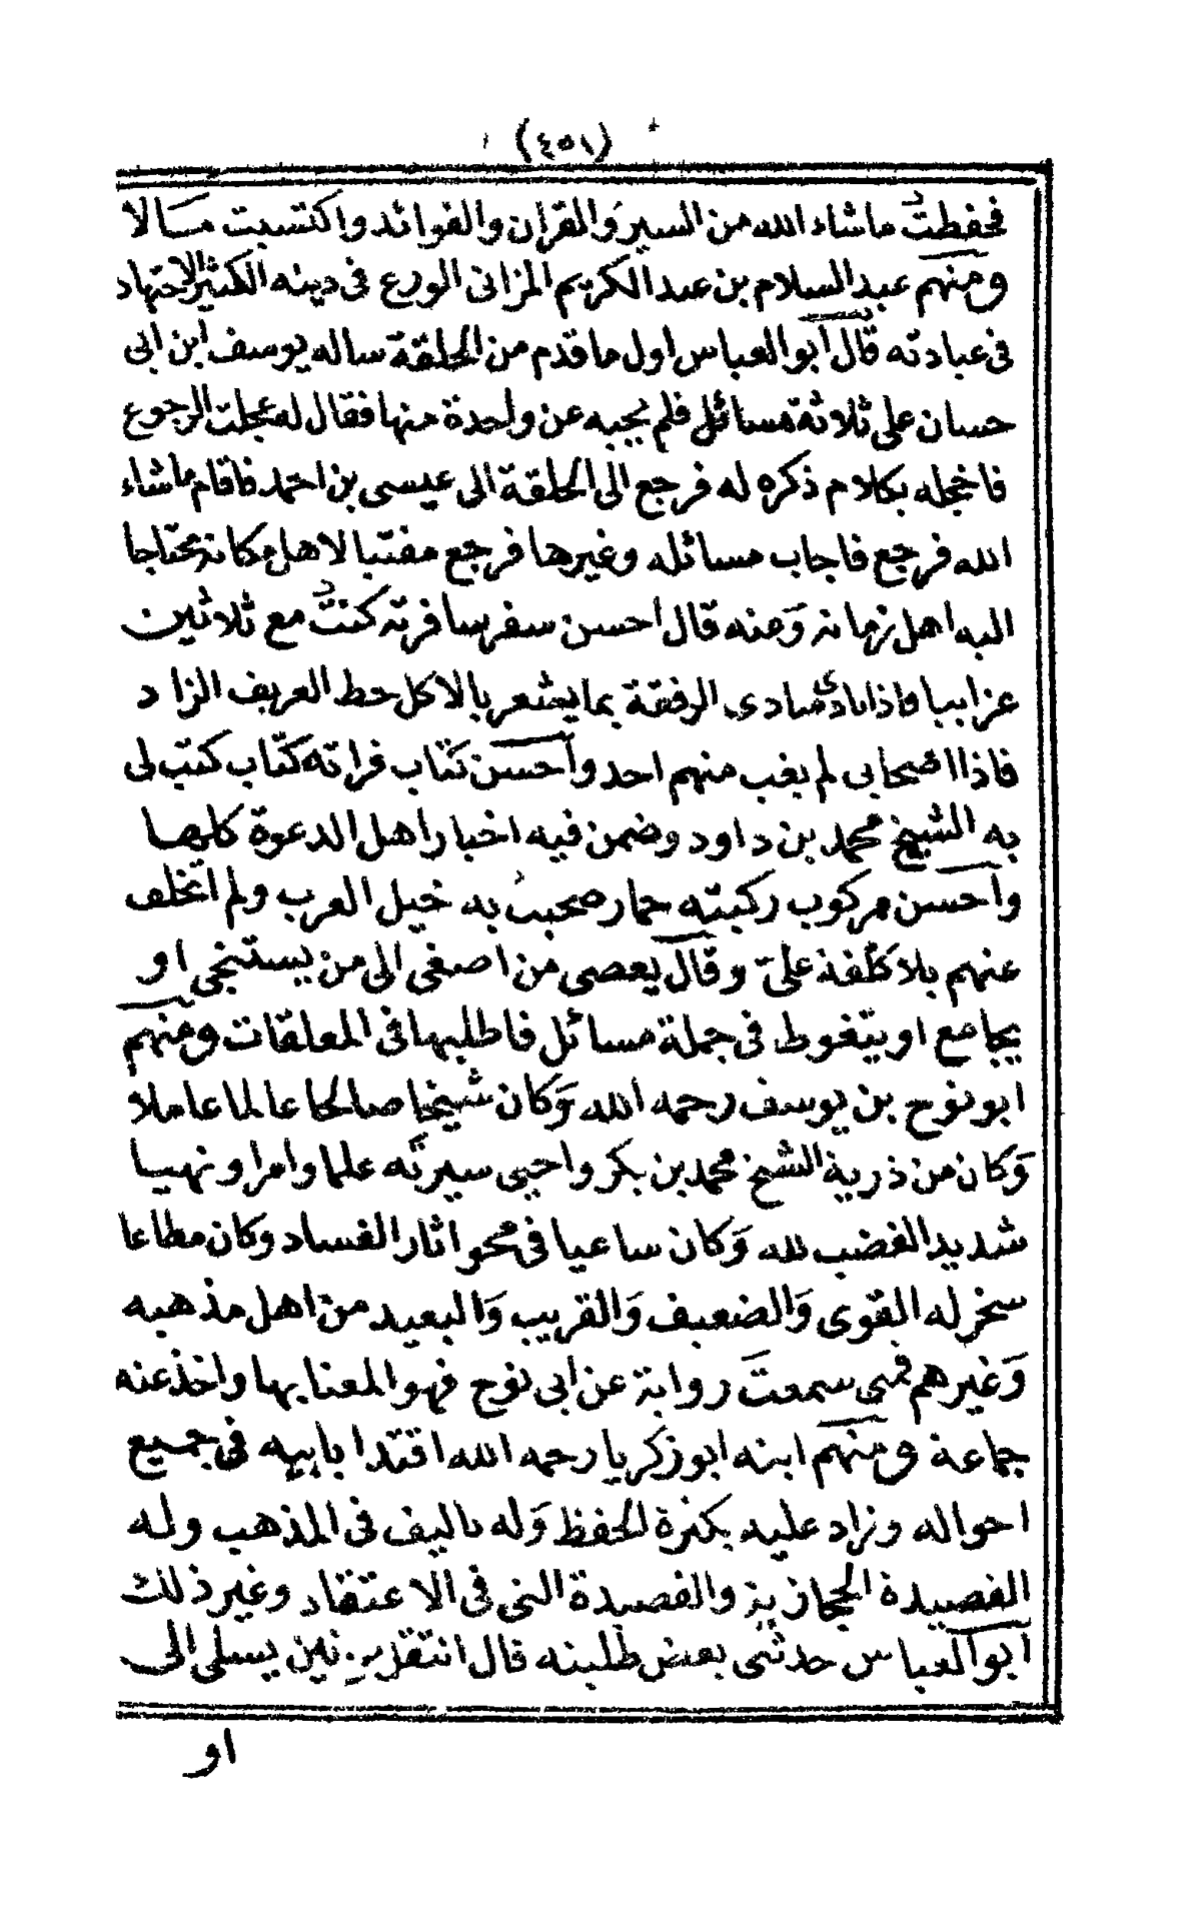 (٤٥١)
فحفظت ما شاء الله من السير والقران والفوائد واكتسبت مسالا
ومنهم عبد السلام بن عبد الكريم المزاتى الورع فى دينه الكثير الاجتهاد
فى عبادته قال ابو العباس اول ما قدم من الحلقة ساله يوسف ابن ابى
حسان على ثلاثة مسائل فلم يجبه عن واحدة منها فقال له عجلت الرجوع
فاخجله بكلام ذكره له فرجع الى الحلقة الى عيسى بن احمد فاقام ما شاء
الله فرجع فاجاب مسائله وغيرها فرجع مفتيا لاهل مكانه محتاجا
اليه اهل زمانه ومنه قال احسن سفر سافرته كنت مع ثلاثين
عزابيا فاذا نادى منادى الرفقة بما يشعر بالاكل حط العريف الزاد
فاذا اصحابى لم يغب منهم احد واحسن كتاب قراته كتاب كتب لى
به الشيخ محمد بن داود وضمن فيه اخبار اهل الدعوة كلها
واحسن مركوب ركبته حمار صحبت به خيل العرب ولم اتخلف
عنهم بلا كلفة على وقال يعصى من اصغى الى من يستنجى او
يجامع او يتغوط فى جملة مسائل فاطلبها فى المعلقات ومنهم
ابو نوح بن يوسف رحمه الله وكان شيخا صالحا عالما عاملا
وكان من ذرية الشيخ محمد بن بكر واحيى سيرته علما وامرا ونهيا
شديد الغضب لله وكان ساعيا فى محو اثار الفساد وكان مطاعا
سخر له القوى والضعيف والقريب والبعيد من اهل مذهبه
وغيرهم فمتى سمعت رواية عن ابى نوح فهو المعنا بها واخذ عنه
جماعة ومنهم ابنه ابو زكريا رحمه الله اقتدا بابيه فى جميع
احواله وزاد عليه بكثرة الحفظ وله تاليف فى المذهب وله
القصيدة الحجازية والقصيدة التى فى الاعتقاد وغير ذلك
ابو العباس حدثنى بعض طلبته قال انتقل من يسلى الى
او